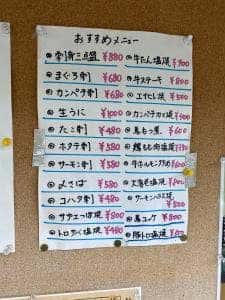 おすすめメニュー
刺身三点盛 ¥880
まぐろ刺 ¥680
カンパチ刺 ¥680
生うに ¥1000
たこ刺 ¥480
ホタテ刺 ¥580
サーモン刺 ¥580
〆さば ¥580
コハダ刺 ¥480
サザエつぼ焼 ¥800
トロサバ塩焼 ¥480
牛たん塩焼 ¥900
牛ステーキ ¥800
エイヒレ焼 ¥500
カンパチカマ焼
鳥もつ煮 ¥600
鶏もも肉塩焼
牛ホルモン炒め ¥600
大海老塩焼
サーモンハラス焼
馬ユッケ ¥800
豚トロ塩焼